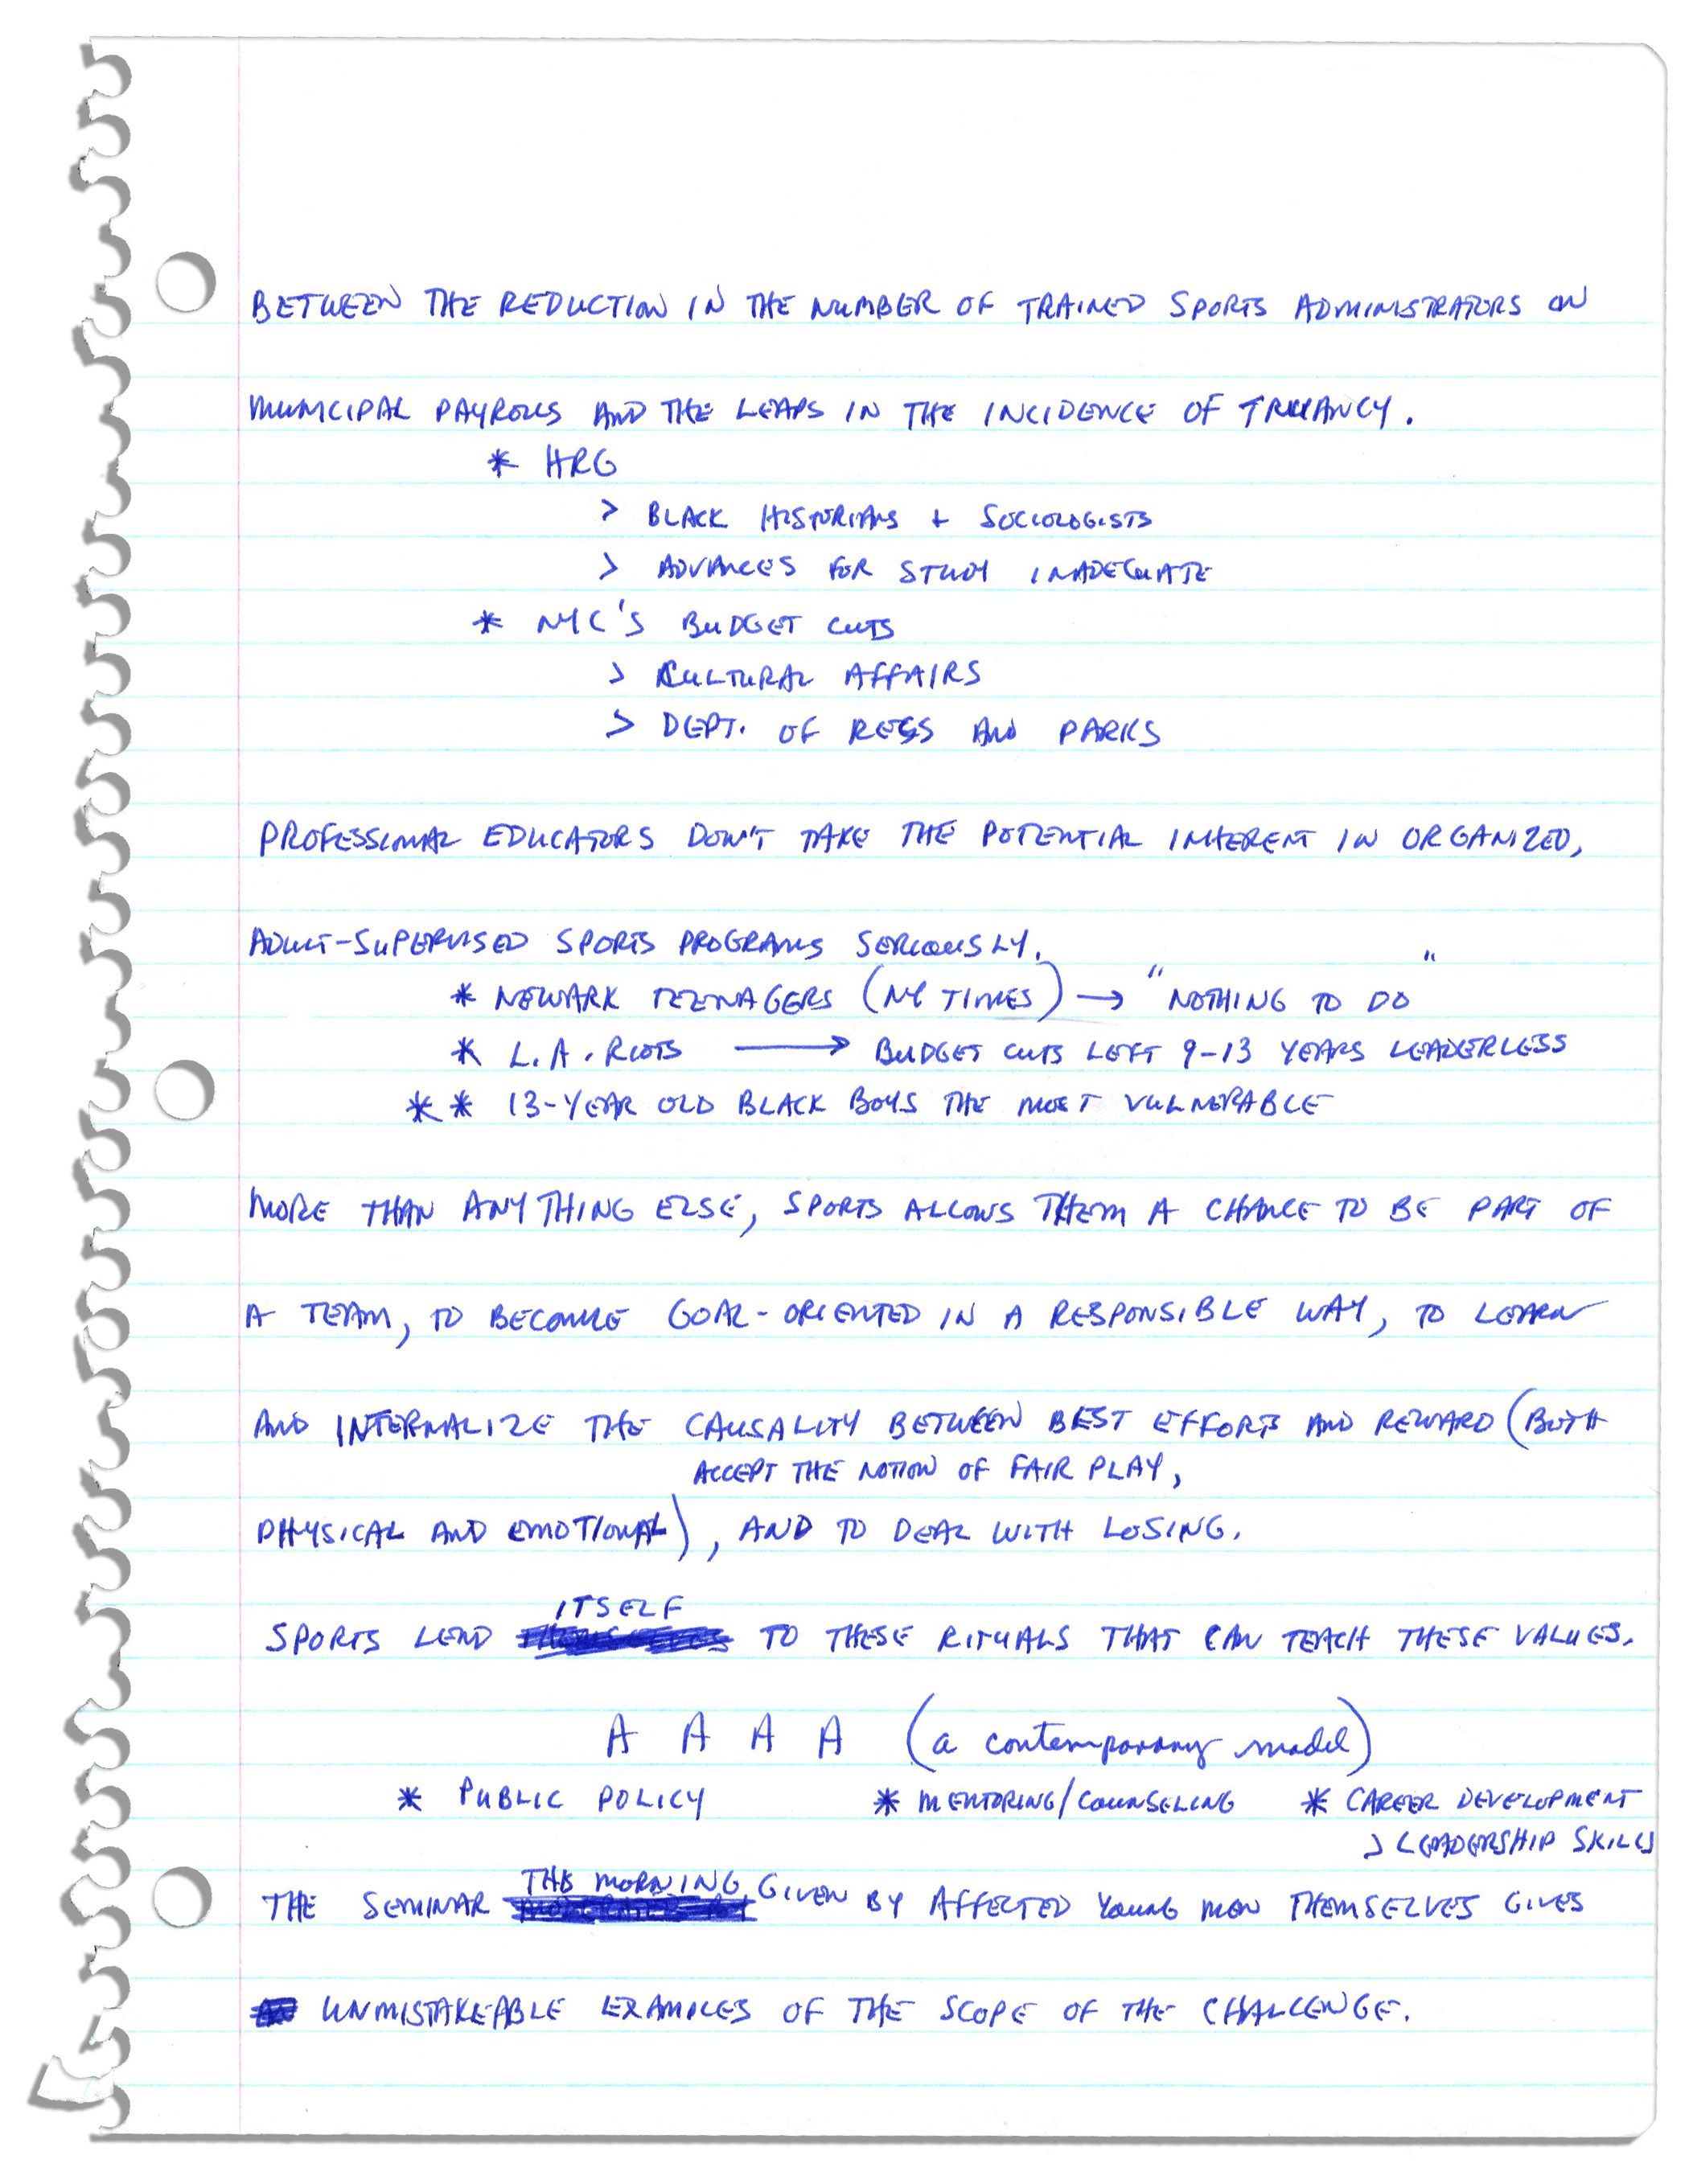 BETWEEN THE REDUCTION IN THE NUMBER OF TRAINED SPORTS ADMINISTRATORS ON
MUNICIPAL PAYROLLS AND THE LEAPS IN THE INCIDENCE OF TRUANCY.
* HRG
> BLACK HISTORIANS + SOCIOLOGISTS
> ADVANCES FOR STUDY INADEQUATE
* NYC'S BUDGET CUTS
> CULTURAL AFFAIRS
> DEPT. OF RECS AND PARKS
PROFESSIONAL EDUCATORS DON'T TAKE THE POTENTIAL INHERENT IN ORGANIZED,
ADULT-SUPERVISED SPORTS PROGRAMS SERIOUSLY.
* NEWARK TEENAGERS (NY TIMES) → "NOTHING TO DO"
* L.A. RIOTS → BUDGET CUTS LEFT 9-13 YEARS LEADERLESS
* * 13-YEAR OLD BLACK BOYS THE MOST VULNERABLE
MORE THAN ANYTHING ELSE, SPORTS ALLOWS THEM A CHANCE TO BE PART OF
A TEAM, TO BECOME GOAL-ORIENTED IN A RESPONSIBLE WAY, TO LEARN
AND INTERNALIZE THE CAUSALITY BETWEEN BEST EFFORTS AND REWARD (BOTH
ACCEPT THE NOTION OF FAIR PLAY,
PHYSICAL AND EMOTIONAL), AND TO DEAL WITH LOSING.
ITSELF
SPORTS LEND TO THESE RITUALS THAT CAN TEACH THESE VALUES.
A A A A (a contemporary model)
* PUBLIC POLICY * MENTORING/COUNSELING * CAREER DEVELOPMENT
> LEADERSHIP SKILLS
THIS MORNING
THE SEMINAR GIVEN BY AFFECTED YOUNG MEN THEMSELVES GIVES
UNMISTAKEABLE EXAMPLES OF THE SCOPE OF THE CHALLENGE.